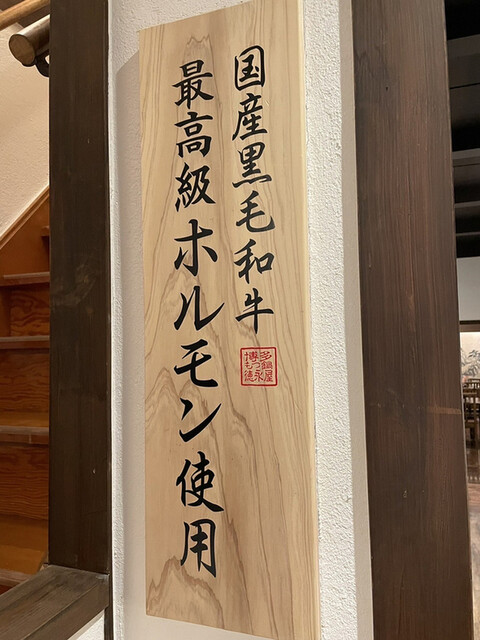 国産黒毛和牛
最高級ホルモン使用